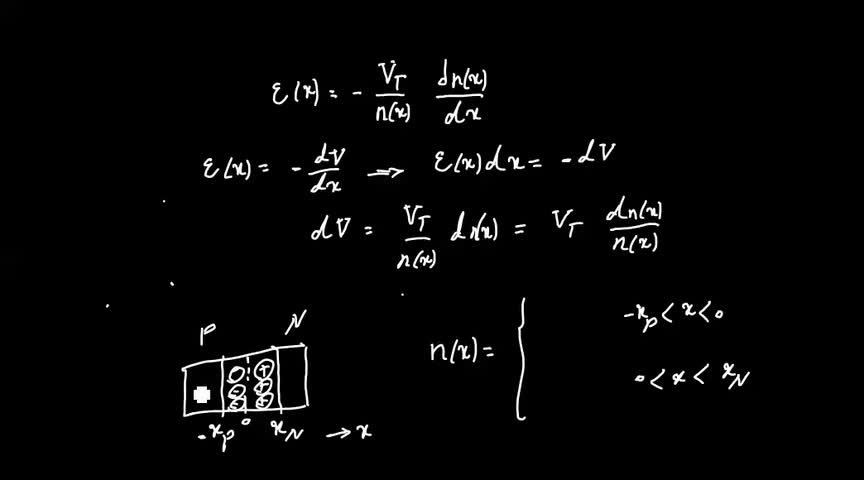 ε(x) = - V_T/n(x) dn(x)/dx
ε(x) = - dV/dx ⇒ ε(x)dx = -dV
dV = V_T/n(x) dn(x) = V_T dn(x)/n(x)
P N
-x_p 0 x_N → x
n(x) = {
-x_p < x < 0
0 < x < x_N